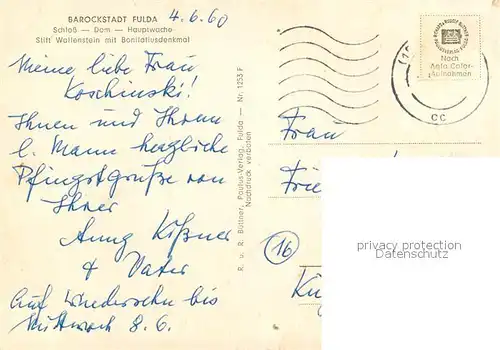 BAROCKSTADT FULDA
4.6.60
Schloß — Dom — Hauptwache
Stift Wallenstein mit Bonifatiusdenkmal
Meine liebe Frau
Koschinski!
Ihnen und Ihrem
l. Mann herzliche
Pfingstgrüße von
Ihrer
Anny Kißner
& Vater
Auf Wiedersehn bis
Mittwoch 8.6.
R. u. R. Büttner, Paulus-Verlag, Fulda — Nr. 1253 F
Nachdruck verboten
Nach
Agfa Color-
Aufnahmen
cc
Frau
Frie
16
privacy protection
Datenschutz